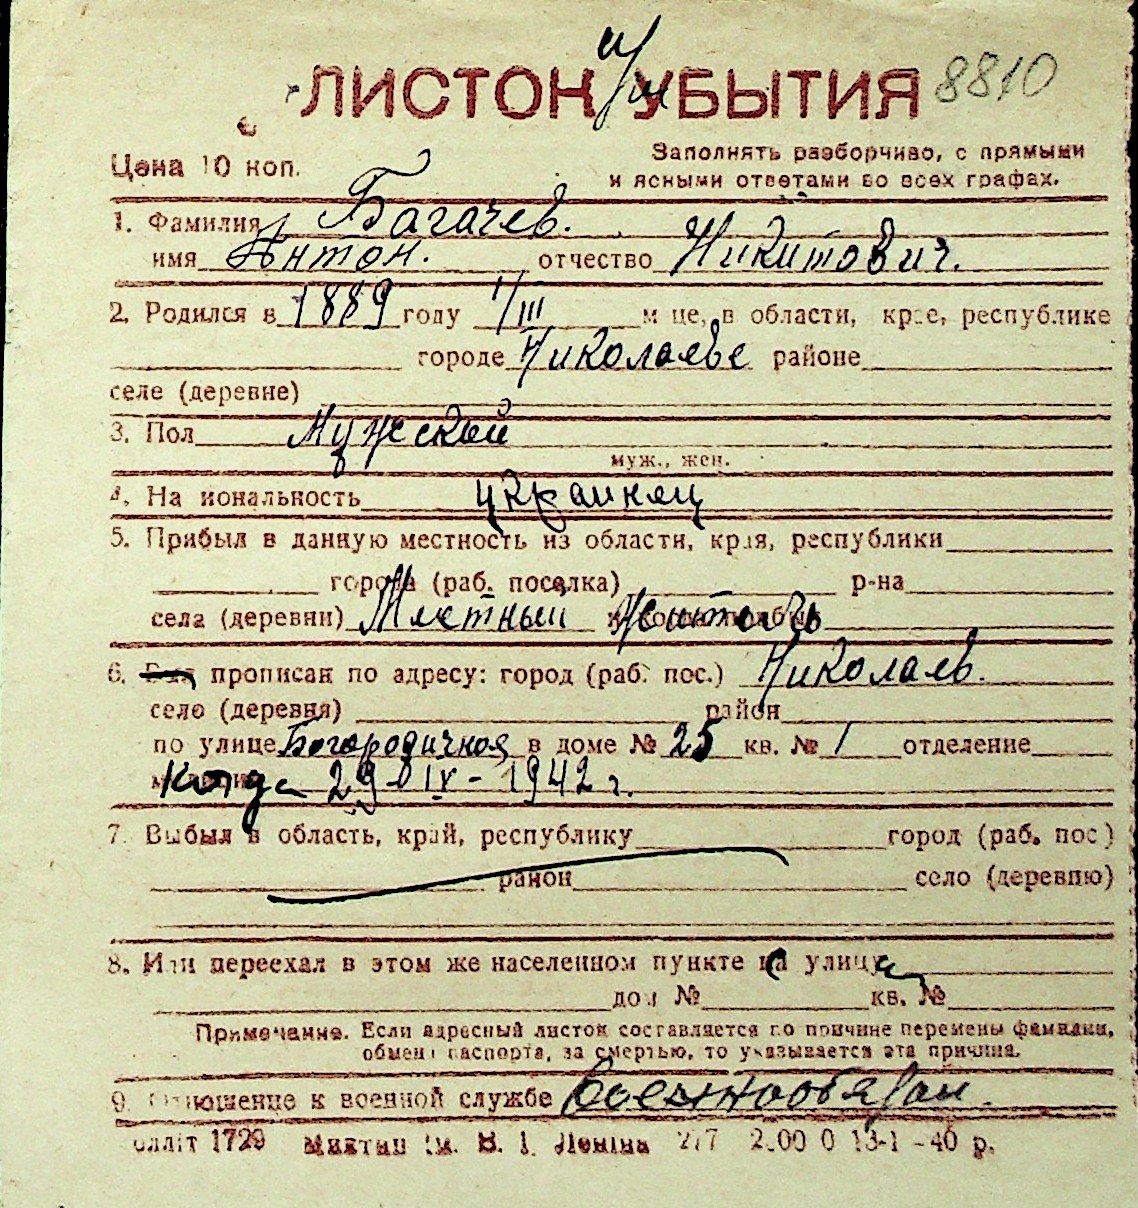 ЛИСТОК УБЫТИЯ 8810
Цена 10 коп.
Заполнять разборчиво, с прямыми
и ясными ответами во всех графах.
1. Фамилия Багачев.
имя Антон. отчество Никитович.
2. Родился в 1889 году 1/III м це, в области, крае, республике
городе Николаеве районе
селе (деревне)
3. Пол Мужской
муж., жен.
4. Национальность украинец
5. Прибыл в данную местность из области, края, республики
города (раб. поселка) р-на
села (деревни) Местный житель
6. прописан по адресу: город (раб. пос.) Николаев.
село (деревня) район
по улице Богородичная в доме № 25 кв. № 1 отделение
Когда 29-IX-1942 г.
7. Выбыл в область, край, республику город (раб. пос)
район село (деревню)
8. Или переехал в этом же населенном пункте на улицу
дом № кв. №
Примечание. Если адресный листок составляется по причине перемены фамилии,
обмена паспорта, за смертью, то указывается эта причина.
9. Отношение к военной службе военнообязан.
блліт 1729 ім. В. І. Леніна 277 2.00 0 13-1 -40 р.